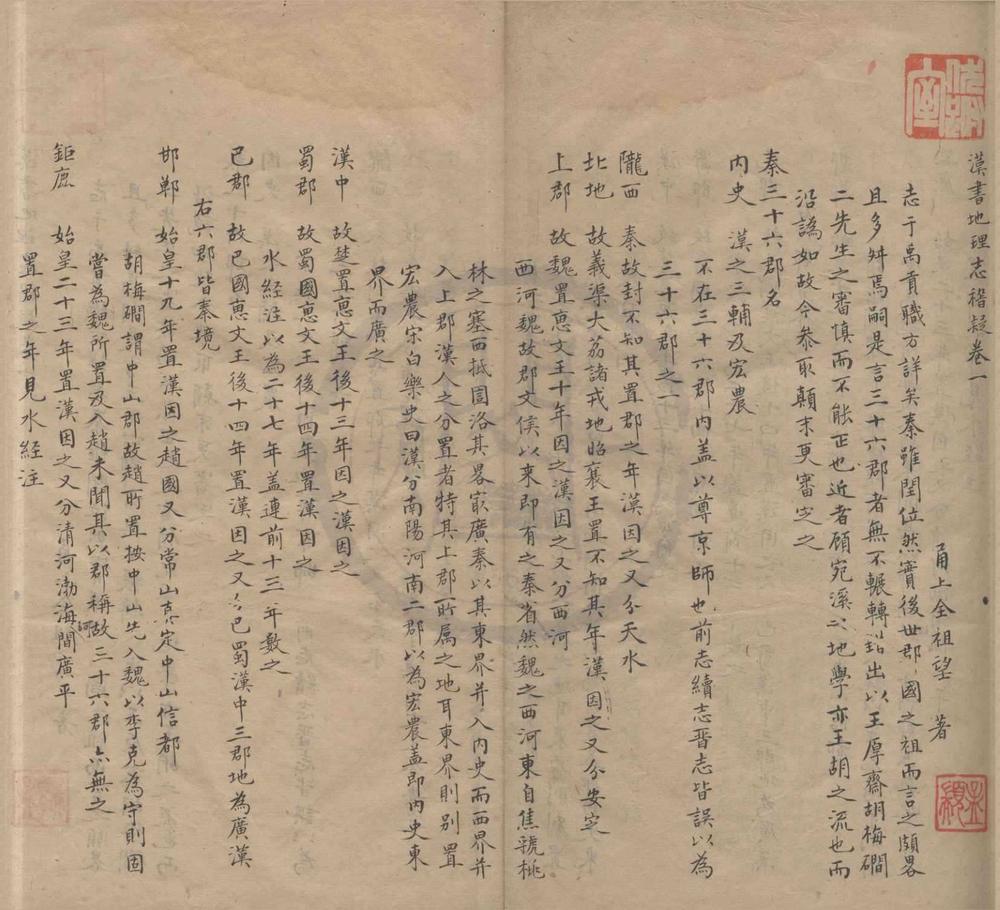 漢書地理志稽疑卷一
甬上全祖望 著
志于禹貢職方詳矣秦雖閏位然實後世郡國之祖而言之頗畧
且多舛焉嗣是言三十六郡者無不輾轉出以王厚齋胡梅磵
二先生之審慎而不能正也近者顧宛溪地學亦王胡之流也而
沿譌如故今參取顛末更審定之
秦三十六郡名
內史 漢之三輔及宏農
不在三十六郡內盖以尊京師也前志續志晋志皆誤以為
三十六郡之一
隴西 秦故封不知其置郡之年漢因之又分天水
北地 故義渠大荔諸戎地昭襄王置不知其年漢因之又分安定
上郡 故魏置惠文王十年因之漢因之又分西河
西河魏故郡文侯以來即有之秦省然魏之西河東自焦虢桃
林之塞西抵圁洛其畧㝡廣秦以其東界并入內史而西界并
入上郡漢人之分置者特其上郡所属之地耳東界則別置
宏農宋白樂史曰漢分南陽河南二郡以為宏農盖即內史東
界而廣之
漢中 故楚置惠文王後十三年因之漢因之
蜀郡 故蜀國惠文王後十四年置漢因之
水經注以為二十七年盖連前十三年數之
巴郡 故巴國惠文王後十四年置漢因之又分巴蜀漢中三郡地為廣漢
右六郡皆秦境
邯鄲 始皇十九年置漢因之趙國又分常山真定中山信都
胡梅磵謂中山郡故趙所置按中山先入魏以李克為守則固
嘗為魏所置及入趙未聞其以郡稱故三十六郡亦無之
鉅鹿 始皇二十三年置漢因之又分清河渤海河間廣平
置郡之年見水經注